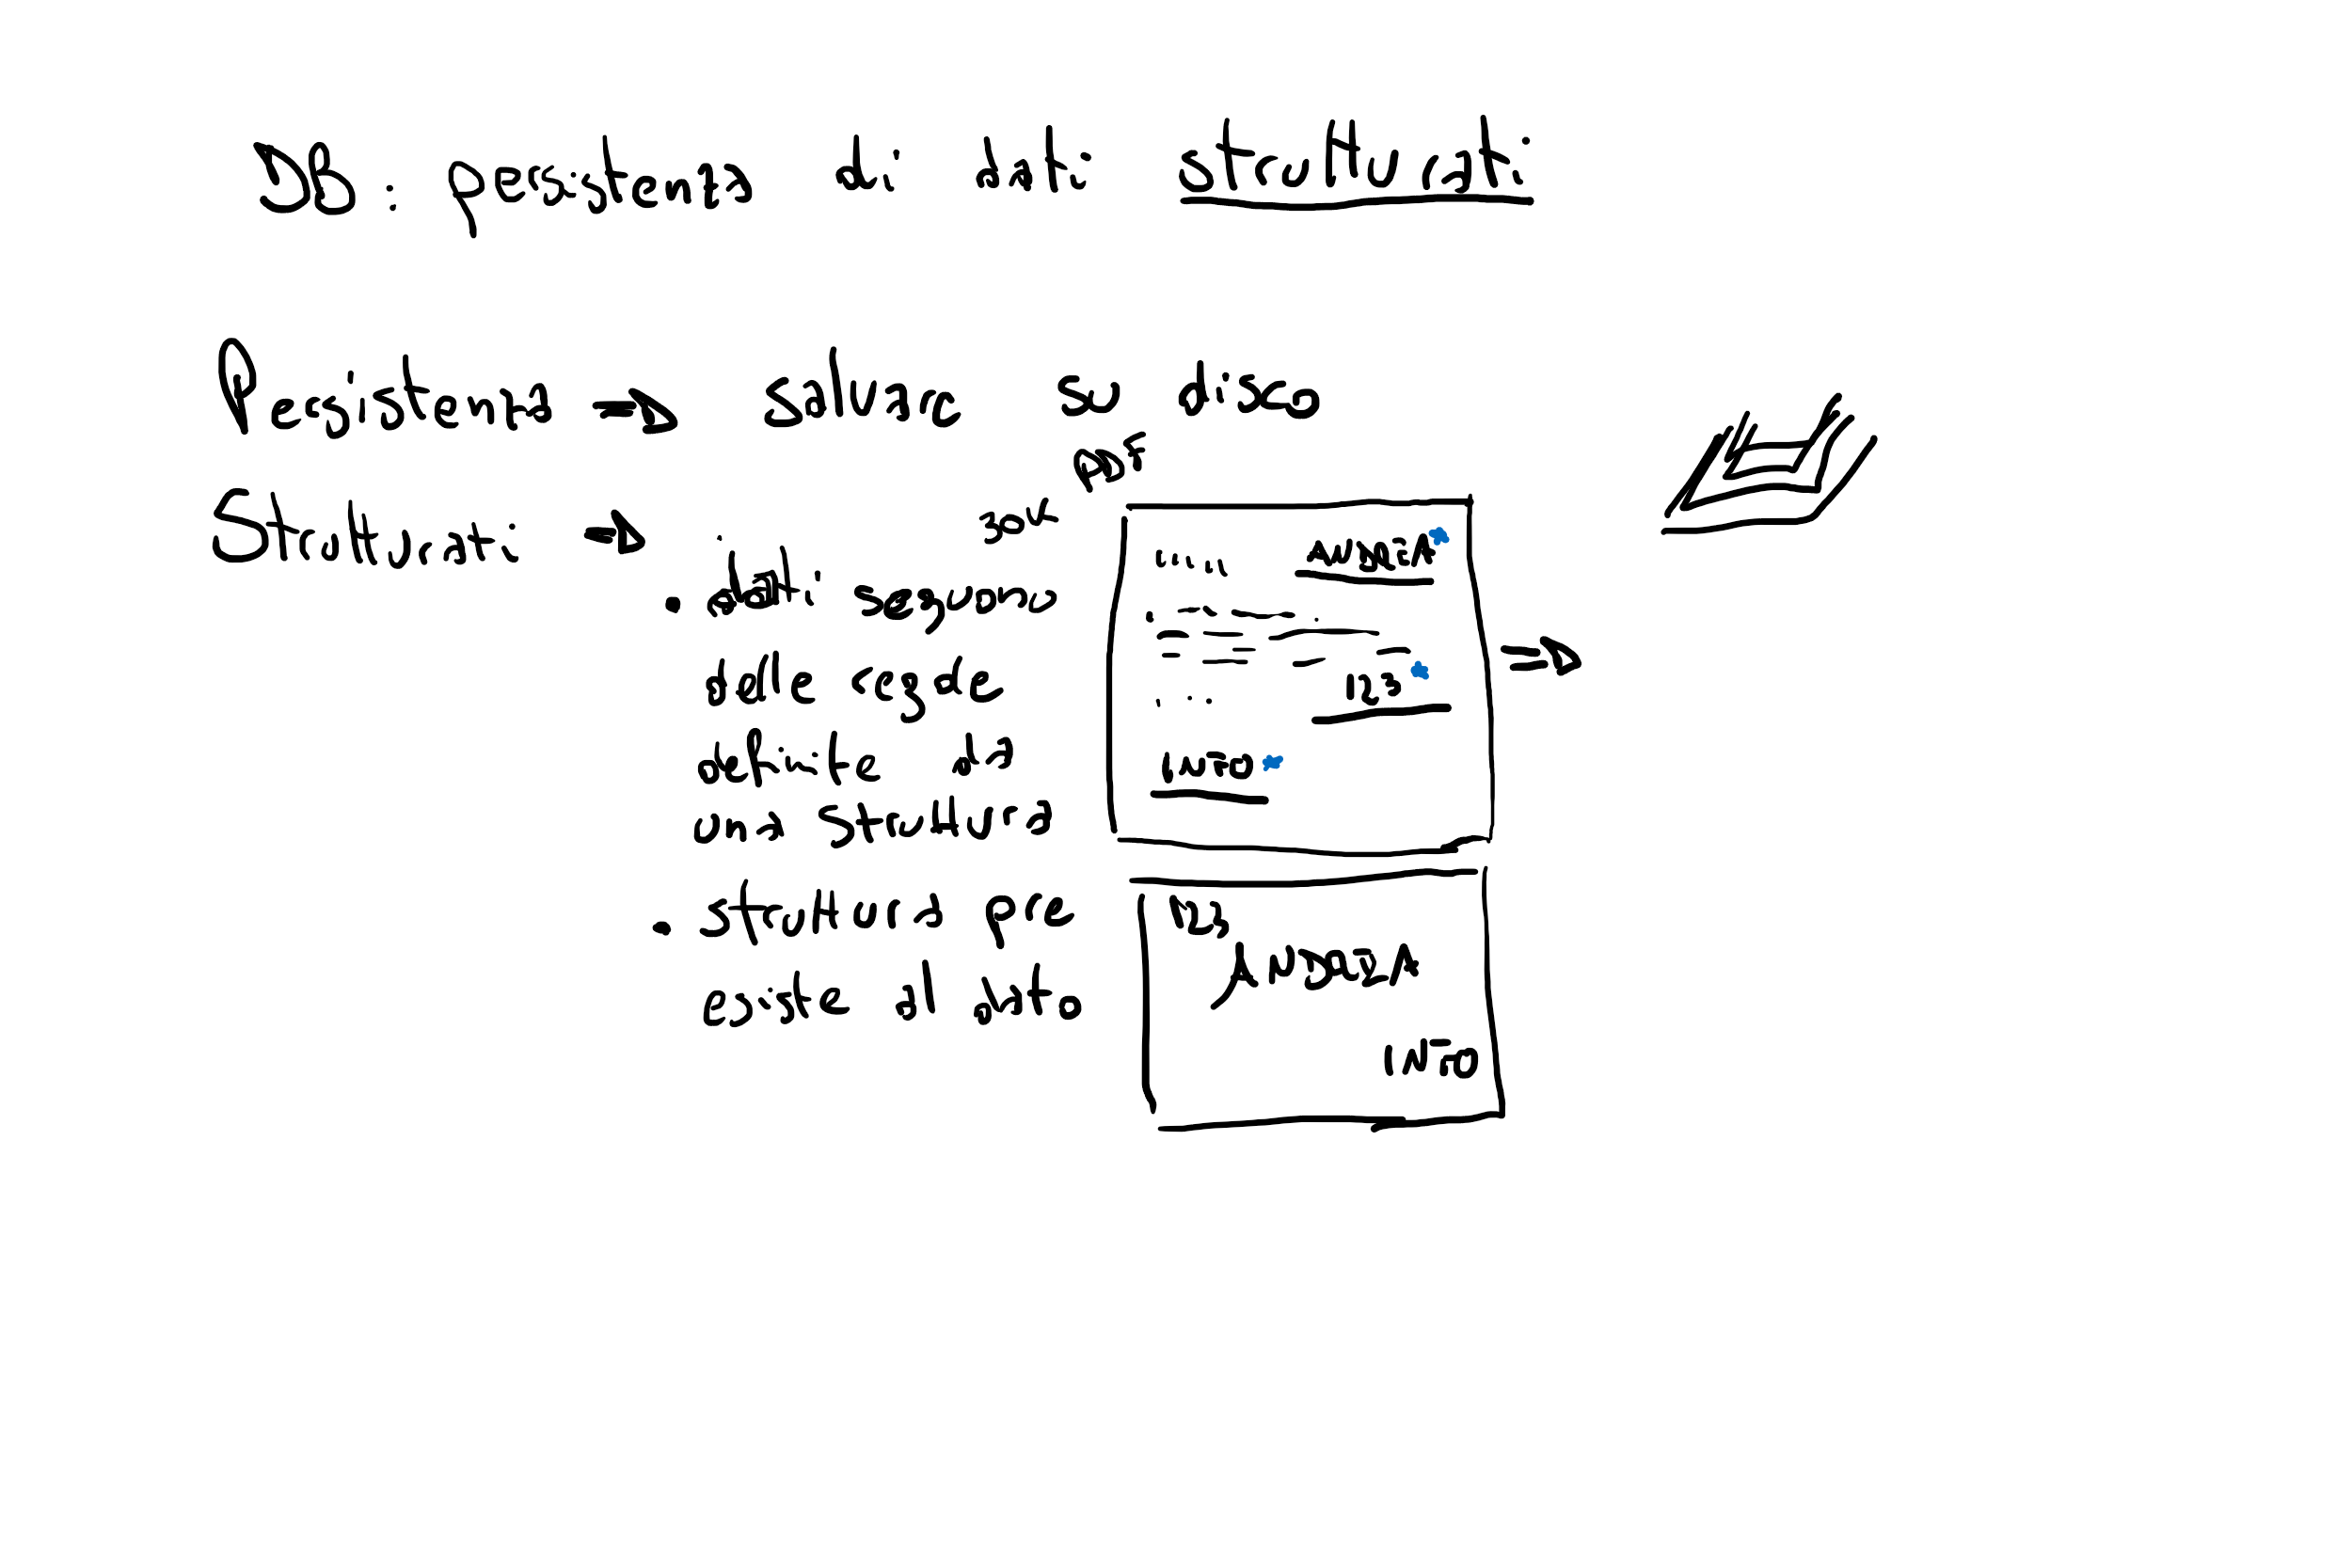 DB: persistenza di dati strutturati
Persistenza => salvare su disco
Strutturati =>
• dati seguono
delle regole
definite da
una struttura
• struttura pre
esiste al dato
30k PDF
ANDREA*
123*
INTO*
=>
123
ANDREA
INTO